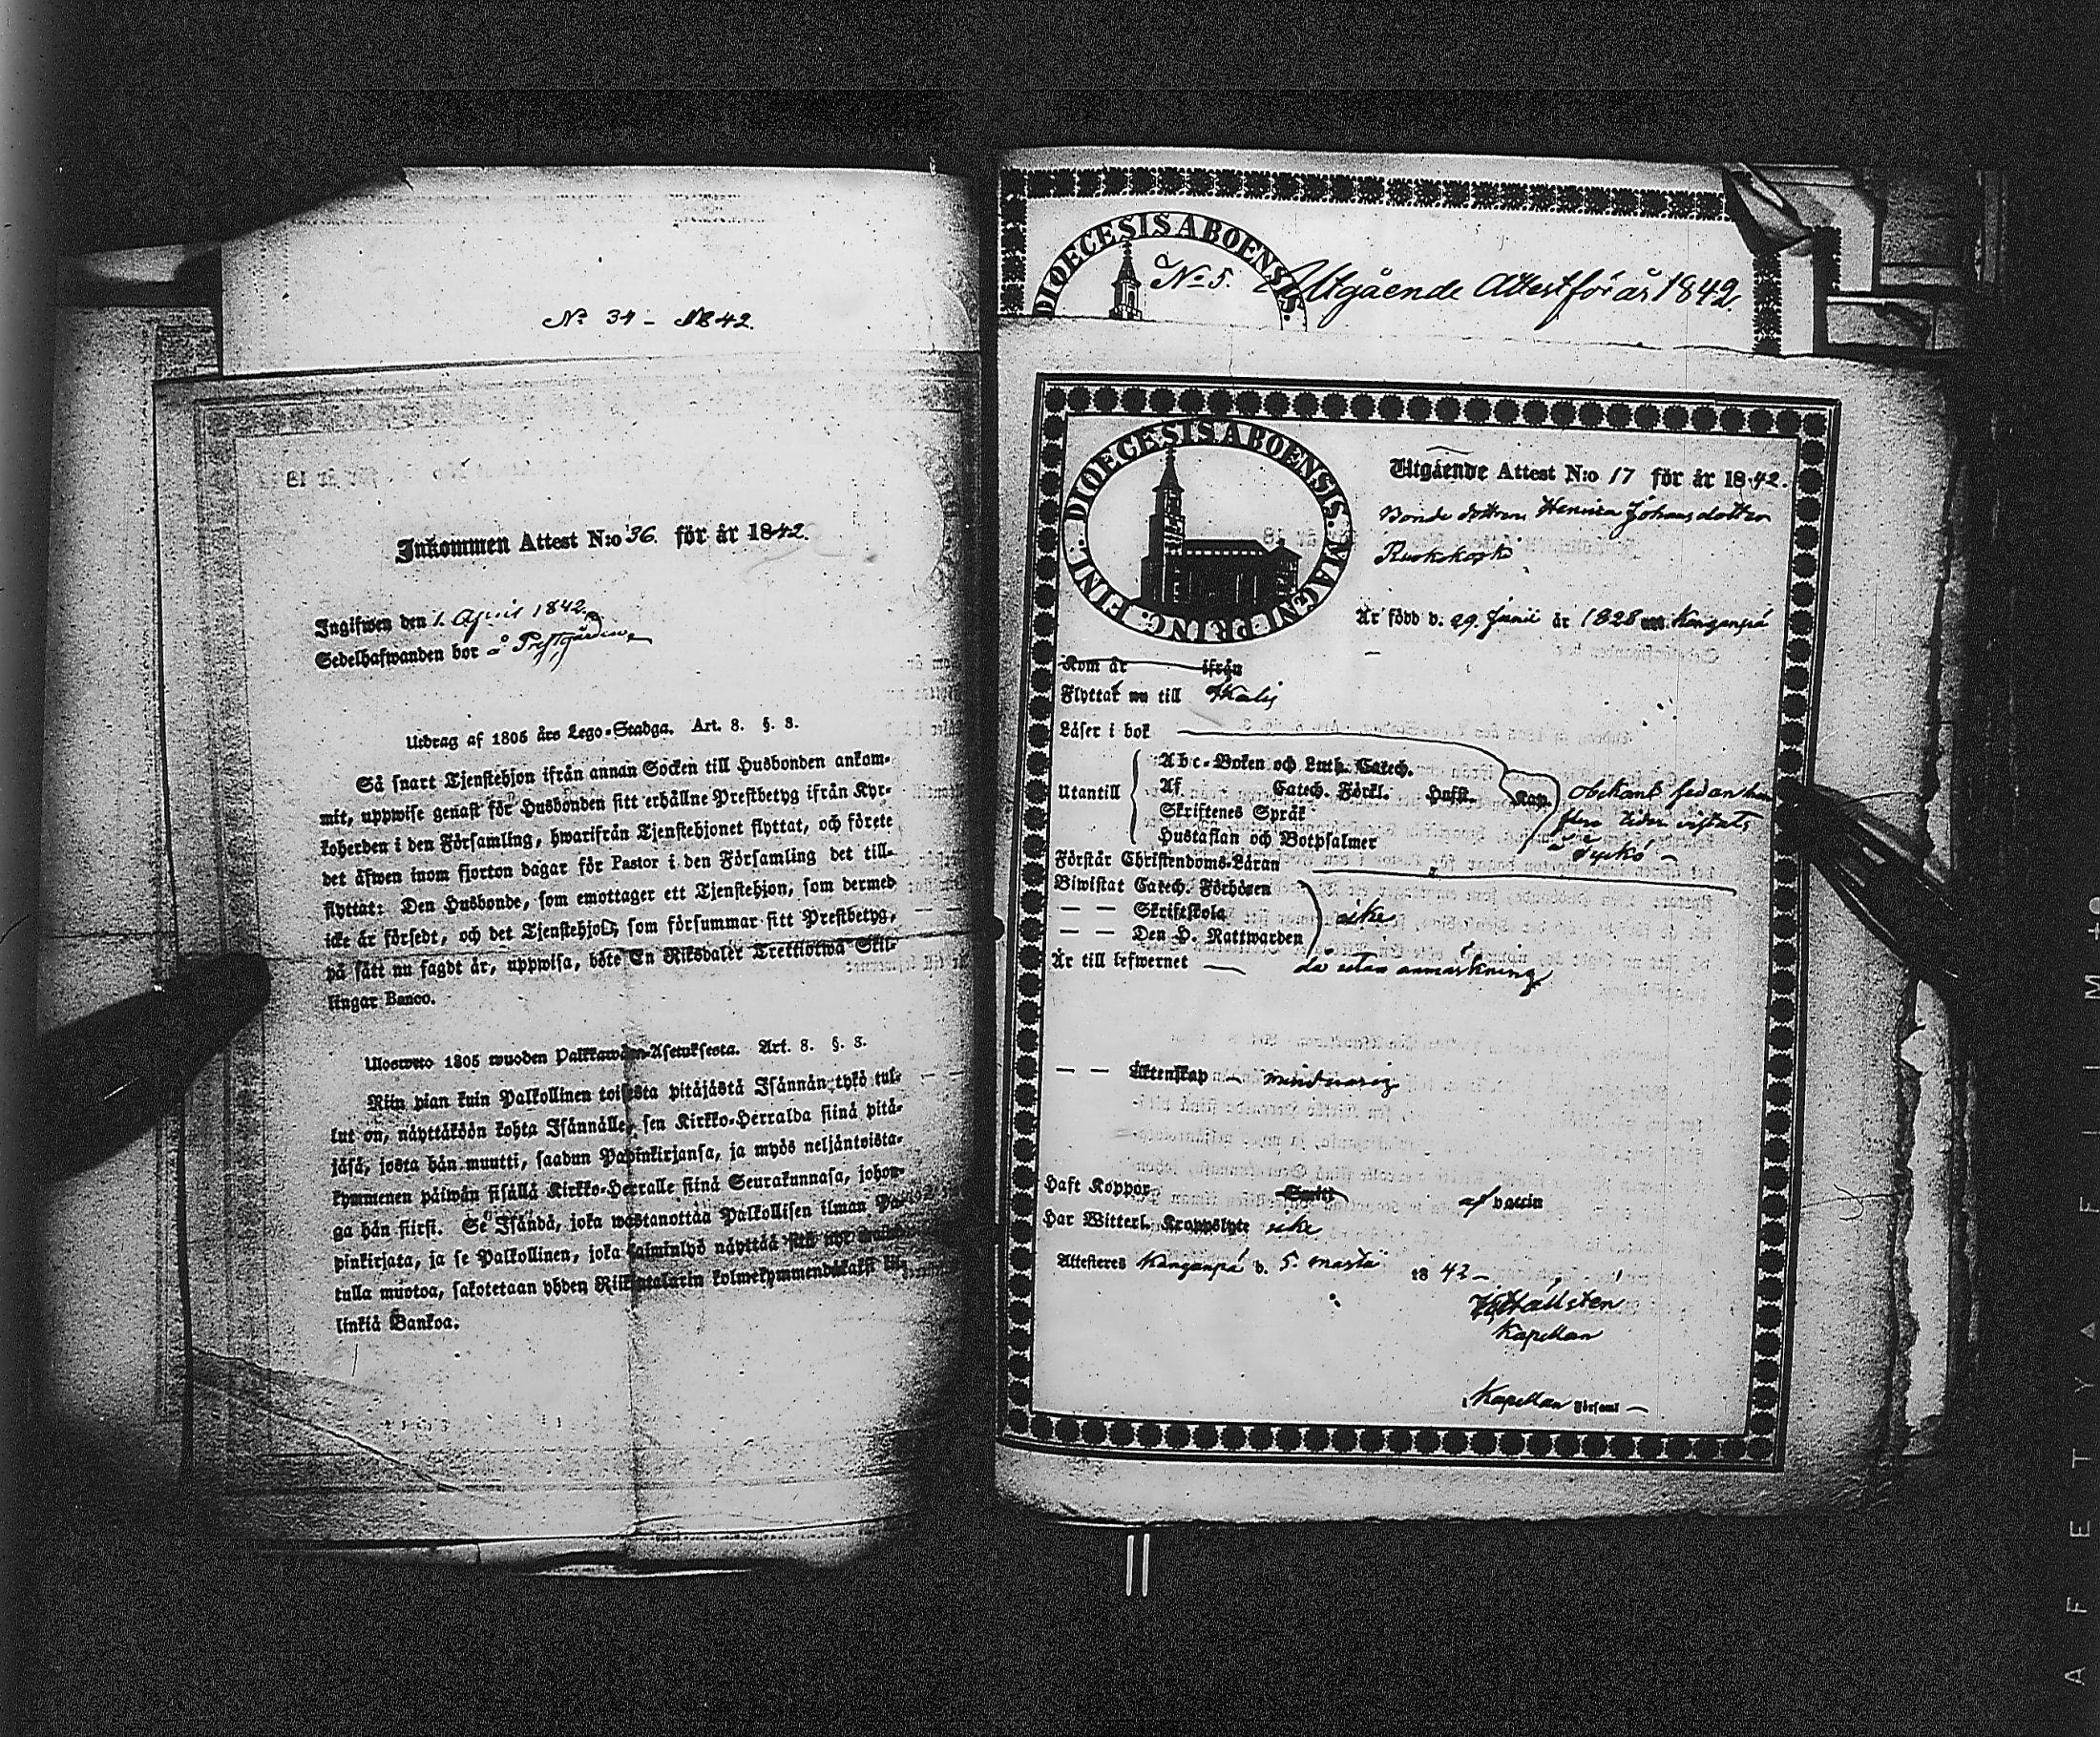 No 34 - 1842.
Inkommen Attest N:o 36. för år 1842.
Ingifwen den 1. April 1842.
Sedelhafwanden bor å Prestgården
Utdrag af 1805 års Lego-Stadga. Art. 8. §. 8.
Så snart Tjenstehjon ifrån annan Socken till Husbonden ankom-
mit, uppwise genast för Husbonden sitt erhållne Prestbetyg ifrån Kyr-
koherden i den Församling, hwarifrån Tjenstehjonet flyttat, och förete
det äfwen inom fjorton dagar för Pastor i den Församling det till-
flyttat: Den Husbonde, som emottager ett Tjenstehjon, som dermed
icke är försedt, och det Tjenstehjon, som försummar sitt Prestbetyg,
på sätt nu sagdt är, uppwisa, böte En Riksdaler Trettiotwå Skil-
lingar Banco.
Ulosweto 1805 wuoden Palkkawäen-Asetuksesta. Art. 8. §. 8.
Niin pian kuin Palkollinen toisesta pitäjästä Isännän tykö tul-
lut on, näyttäköön kohta Isännälle, sen Kirkko-Herralda siinä pitä-
jäsä, josta hän muutti, saadun Papinkirjansa, ja myös neljäntoista-
kymmenen päiwän sisällä Kirkko-Herralle siinä Seurakunnasa, johon-
ga hän siirsi. Se Isändä, joka wastanottaa Palkollisen ilman Pa-
pinkirjata, ja se Palkollinen, joka laiminlyö näyttää sitä nyt
tulla muotoa, sakotetaan yhden Riikintalarin kolmekymmendäkaksi kil-
linkiä Bankoa.
DIOECESIS ABOENSIS.
No 5. Utgående Attest för år 1842.
DIOECESIS ABOENSIS. MAGNI PRINC. FINL.
Utgående Attest N:o 17 för år 1842.
Bonde dottren Henrica Johansdotter
Ruokokoski
Är född d. 29. Junii år 1828 Kanganpä
Kom år ifrån
Flyttar nu till
Läser i bok
Utantill
Abc-Boken och Luth. Catech.
Af Catech. Förkl. Hufst. Kap.
Skriftenes Språk
Hustaflan och Botpsalmer
obekant sedan hon
flere tider vistats
i Tyrkö
Förstår Christendoms-Läran
Biwistat Catech. Förhören
— — Skriftskola
— — Den H. Nattwarden
icke
Är till lefwernet — utan anmärkning
— — Äktenskap — minderårig
Haft Koppor Smitt af vaccin
Har Witterl. Kroppslyte icke
Attesteres Kanganpä d. 5. Martii 1842 -
Hällstén
Kapellan
i Kapellan Församl —